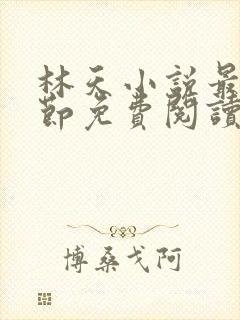 林天小説最
節免費閱讀
博桑戈阿